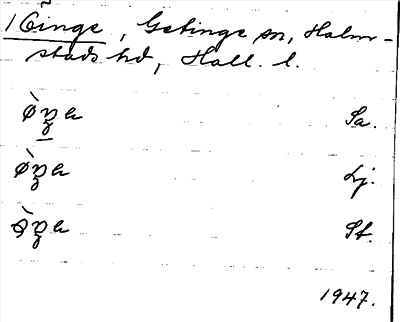 1 Öinge, Getinge sn, Halm-
stads hd, Hall. l.
Sa.
Lj.
St.
1947.